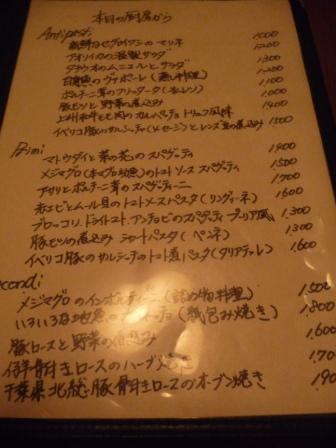 本日の厨房から
Antipasti
新鮮なセグロイワシのマリネ 1000
アオリイカの温製サラダ 1200
タチウオのムニエルとサラダ 1300
白身魚のヴァポーレ(蒸し料理) 1200
ポルチーニ茸のフリッタータ(オムレツ) 1100
豚モツと野菜の煮込み 1000
上州和牛モモ肉のカルパッチョ トリュフ風味 1800
イベリコ豚のサルシッチャ(ソーセージ)とレンズ豆の煮込み 1500
Primi
マトウダイと菜の花のスパゲッティ 1900
メジマグロ(本マグロ幼魚)のトマトソース スパゲッティ 1500
アサリとポルチーニ茸のスパゲッティーニ 1700
赤エビとムール貝のトマトソースパスタ(リングイーネ) 1.600
ブロッコリ、ドライトマト、アンチョビのスパゲッティ プーリア風 1.300
豚モツの煮込み ショートパスタ(ペンネ) 1.300
イベリコ豚のサルシッチャのトマト煮パスタ(タリアテッレ) 1.600
econdi
メジマグロのインボルティーニ(詰め物料理) 1.500
いろいろな地魚の(紙包み焼き) 1.800
豚ロースと野菜の煮込み 1.600
仔羊骨付きロースのハーブ 1.70
千葉県北総豚骨付きロースのオーブン焼き 1.90